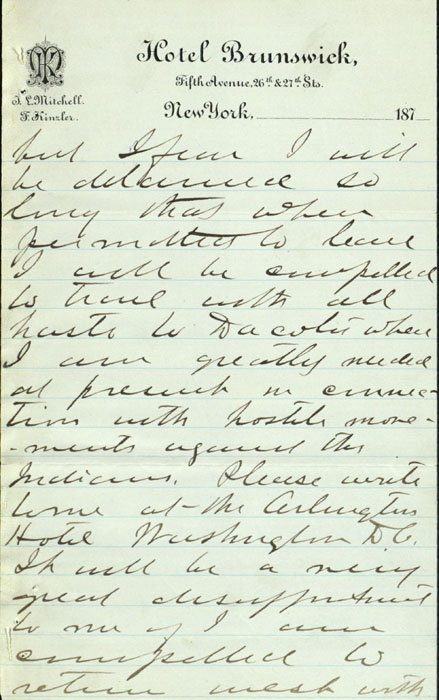 Hotel Brunswick,
Fifth Avenue, 26th & 27th Sts.
J. L. Mitchell.
F. Kinzler.
New York, 187
but I fear I will
be detained so
long that when
permitted to leave
I will be compelled
to travel with all
haste to Dacota where
I am greatly needed
at present in connec-
tion with hostile move-
-ments against the
Indians. Please write
to me at the Arlington
Hotel Washington D.C.
It will be a very
great disappointment
to me if I am
compelled to
return west with